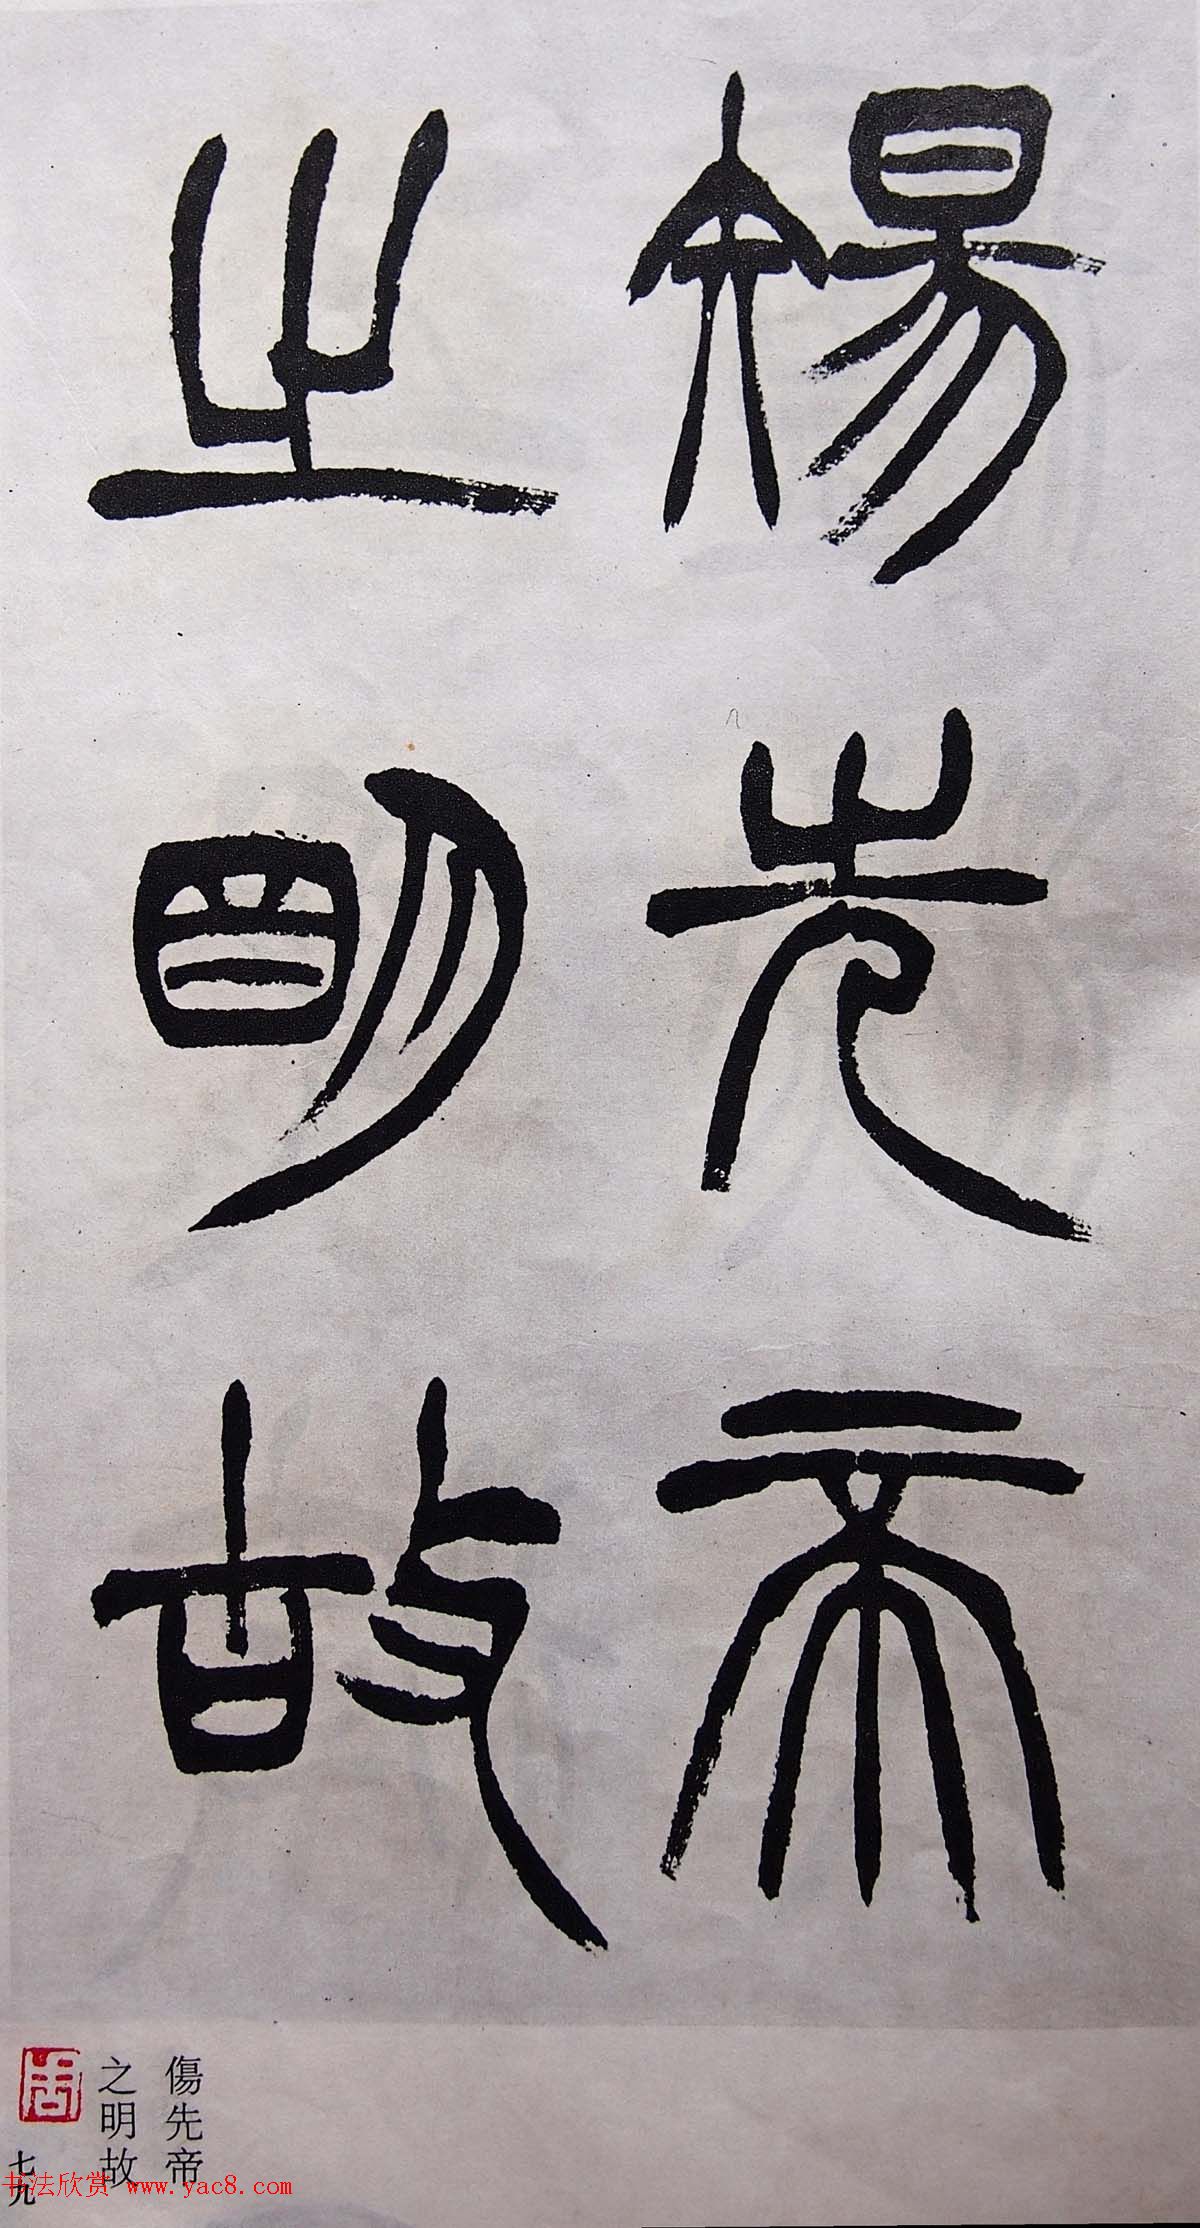 傷先帝
之明故
傷先帝
之明故
七九
书法欣赏 www.yac8.com